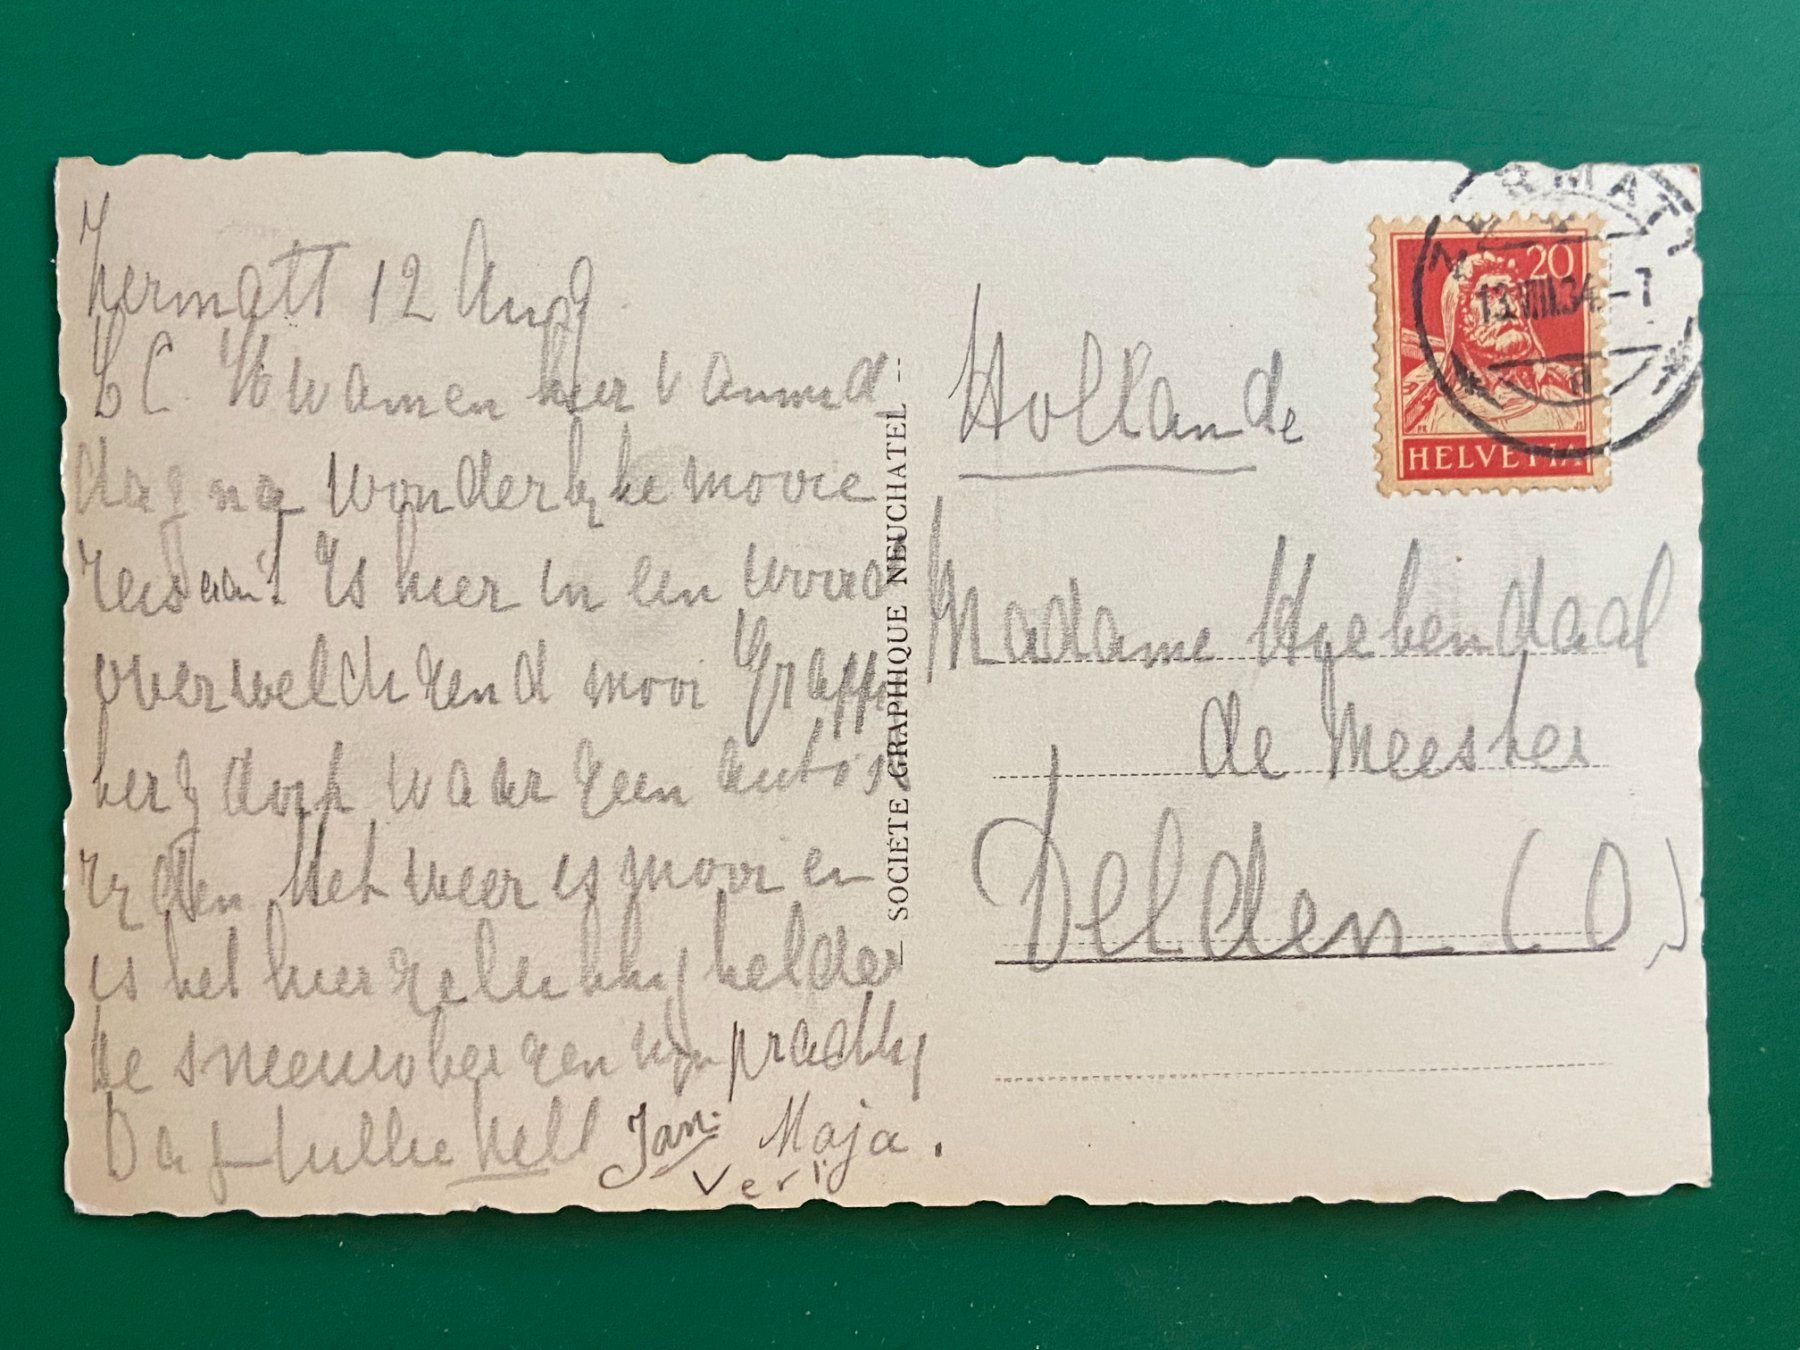 Zermatt 12 Aug
L C. We kwamen hier vanmid
dag na wonderlyke mooie
reis aan! Is hier in een woord
overweldigend mooi Grappig
berg dorp waar geen auto's
ryden Het weer is mooi en
is het hier gelukkig helder
de sneeuwbergen zyn prachtig
Dag jullie Nell Jan: Maja.
Veri
SOCIÉTÉ GRAPHIQUE NEUCHATEL
ZERMATT
13.VIII.34.-7
d
20
HELVETIA
Hollande
Madame Hogebendaal
de Meester
Delden (O)